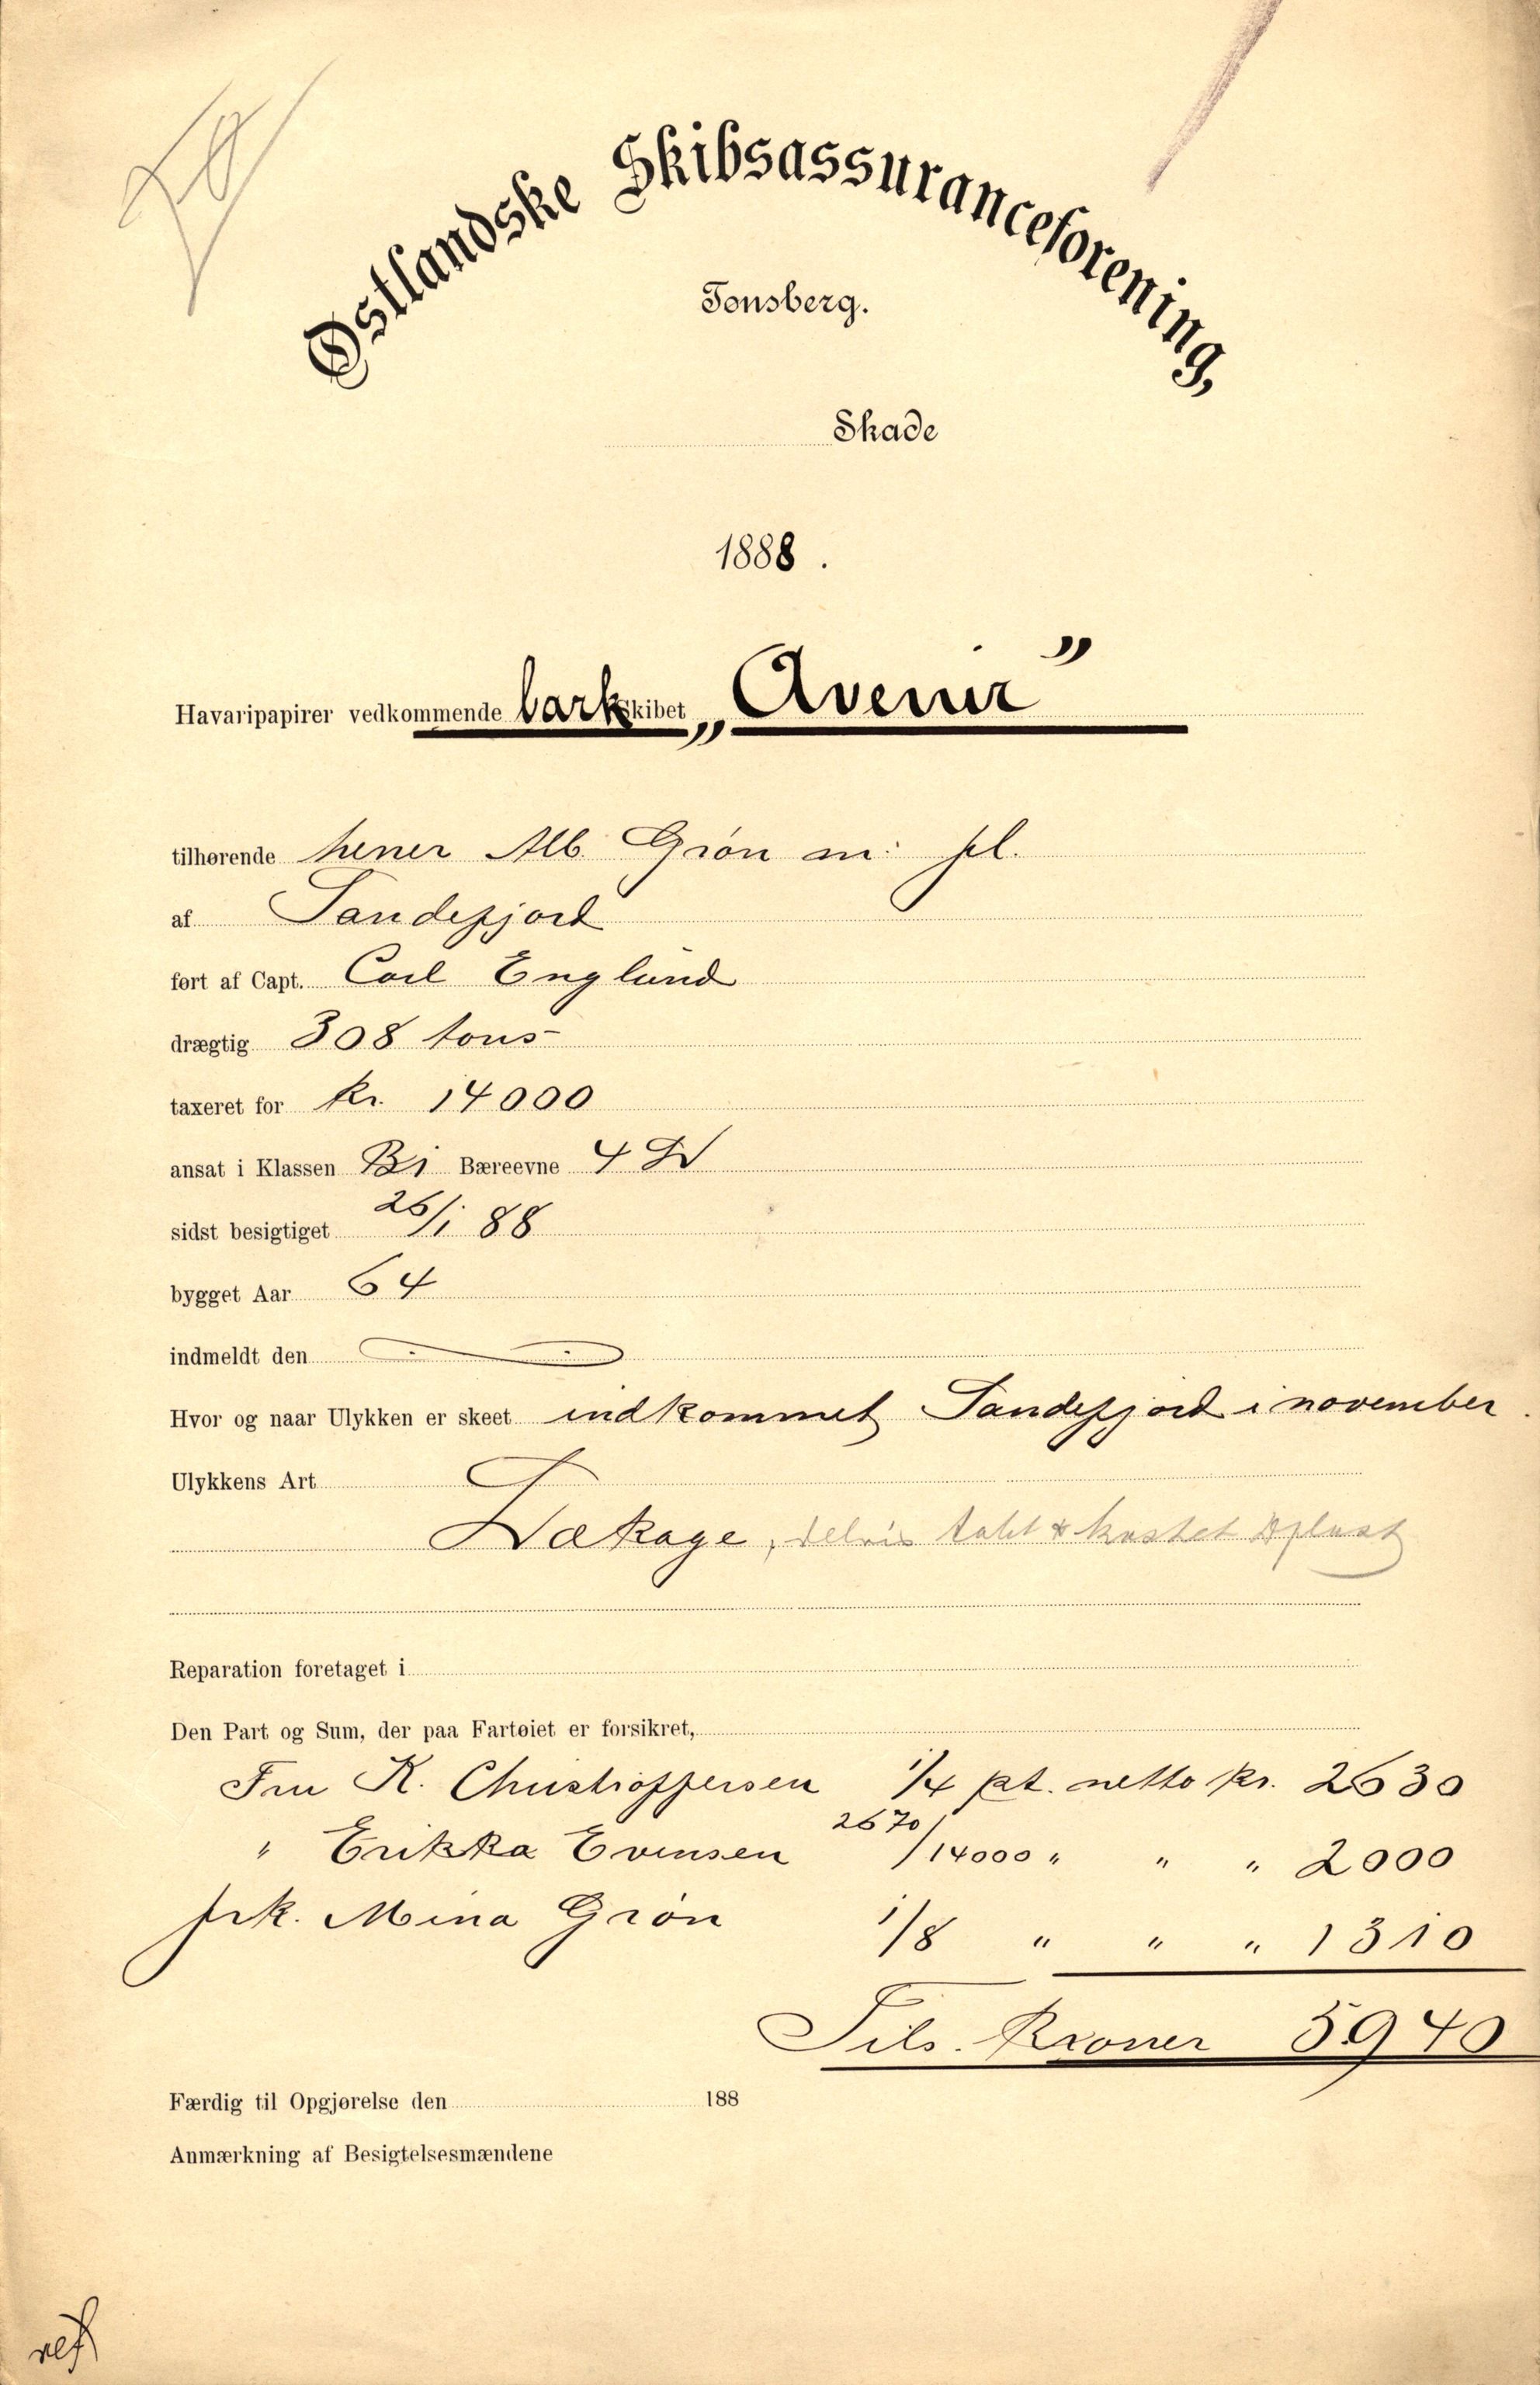 Østlandske Skibsassuranceforening,
Tonsberg.
Skade
1888.
Havaripapirer vedkommende barkskibet „Avenir”
tilhørende herrer Alb. Grøn m: fl.
af Sandefjord
ført af Capt. Carl Englund
drægtig 308 tons
taxeret for kr. 14000
ansat i Klassen B1 Bæreevne 4
sidst besigtiget 26/1 88
bygget Aar 64
indmeldt den
Hvor og naar Ulykken er skeet indkommet Sandefjord i november.
Ulykkens Art
Lækage, delvis tabt & kastet Dæklast
Reparation foretaget i
Den Part og Sum, der paa Fartøiet er forsikret,
Fru K. Christoffersen 1/4 pt. netto kr. 2630
" Erikka Evensen 2670/14000 " " " 2000
frk. Mina Grøn 1/8 " " " 1310
Tils. Kroner 5940
Færdig til Opgjørelse den 188
Anmærkning af Besigtelsesmændene